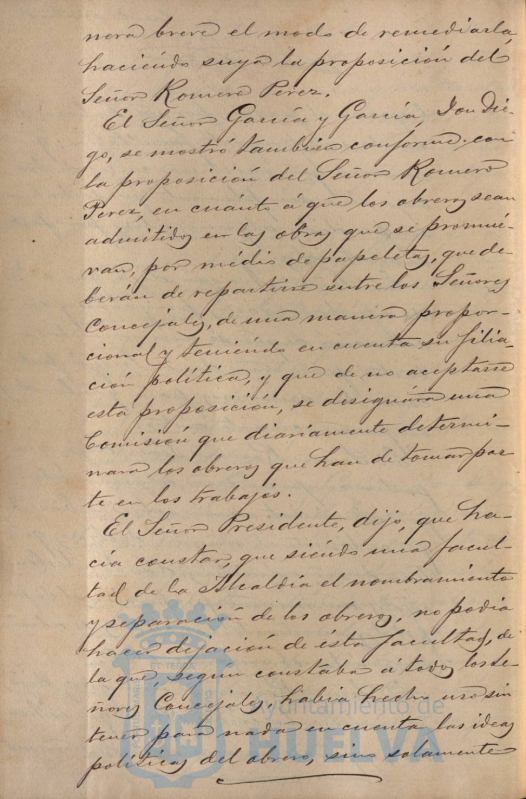 nera breve el modo de remediarla,
haciendo suya la proposición del
Señor Romero Perez.
El Señor García y García, Don Die-
go, se mostró tambien conforme con
la proposición del Señor Romero
Perez, en cuánto á que los obreros sean
admitidos en las obras que se promue-
van, por médio de papeletas, que de-
berán de repartirse entre los Señores
Concejales, de una manera propor-
cional y teniendo en cuenta su filia-
ción política, y que de no aceptarse
esta proposición, se designára una
Comisión que diariamente determi-
nara los obreros que han de tomar par-
te en los trabajos.
El Señor Presidente, dijo, que ha-
cia constar, que siendo una facul-
tad de la Alcaldía el nombramiento
y separación de los obreros, no podia
hacer dejación de ésta facultad, de
la que, segun constaba á todos los Se-
ñores Concejales, habia hecho uso sin
tener para nada en cuenta las ideas
políticas del obrero, sino solamente
Ayuntamiento de
HUELVA